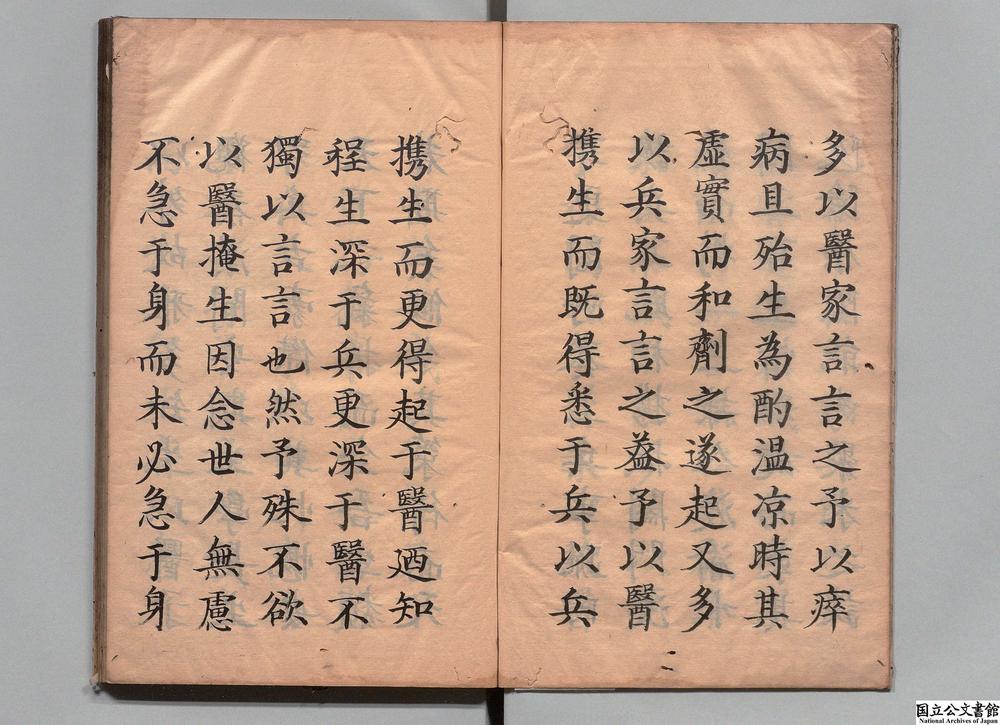 多以醫家言言之予以瘁
病且殆生為酌温凉時其
虛實而和劑之遂起又多
以兵家言言之益予以醫
携生而既得悉于兵以兵
携生而更得起于醫廼知
程生深于兵更深于醫不
獨以言言也然予殊不欲
以醫掩生因念世人無慮
不急于身而未必急于身
国立公文書館
National Archives of Japan